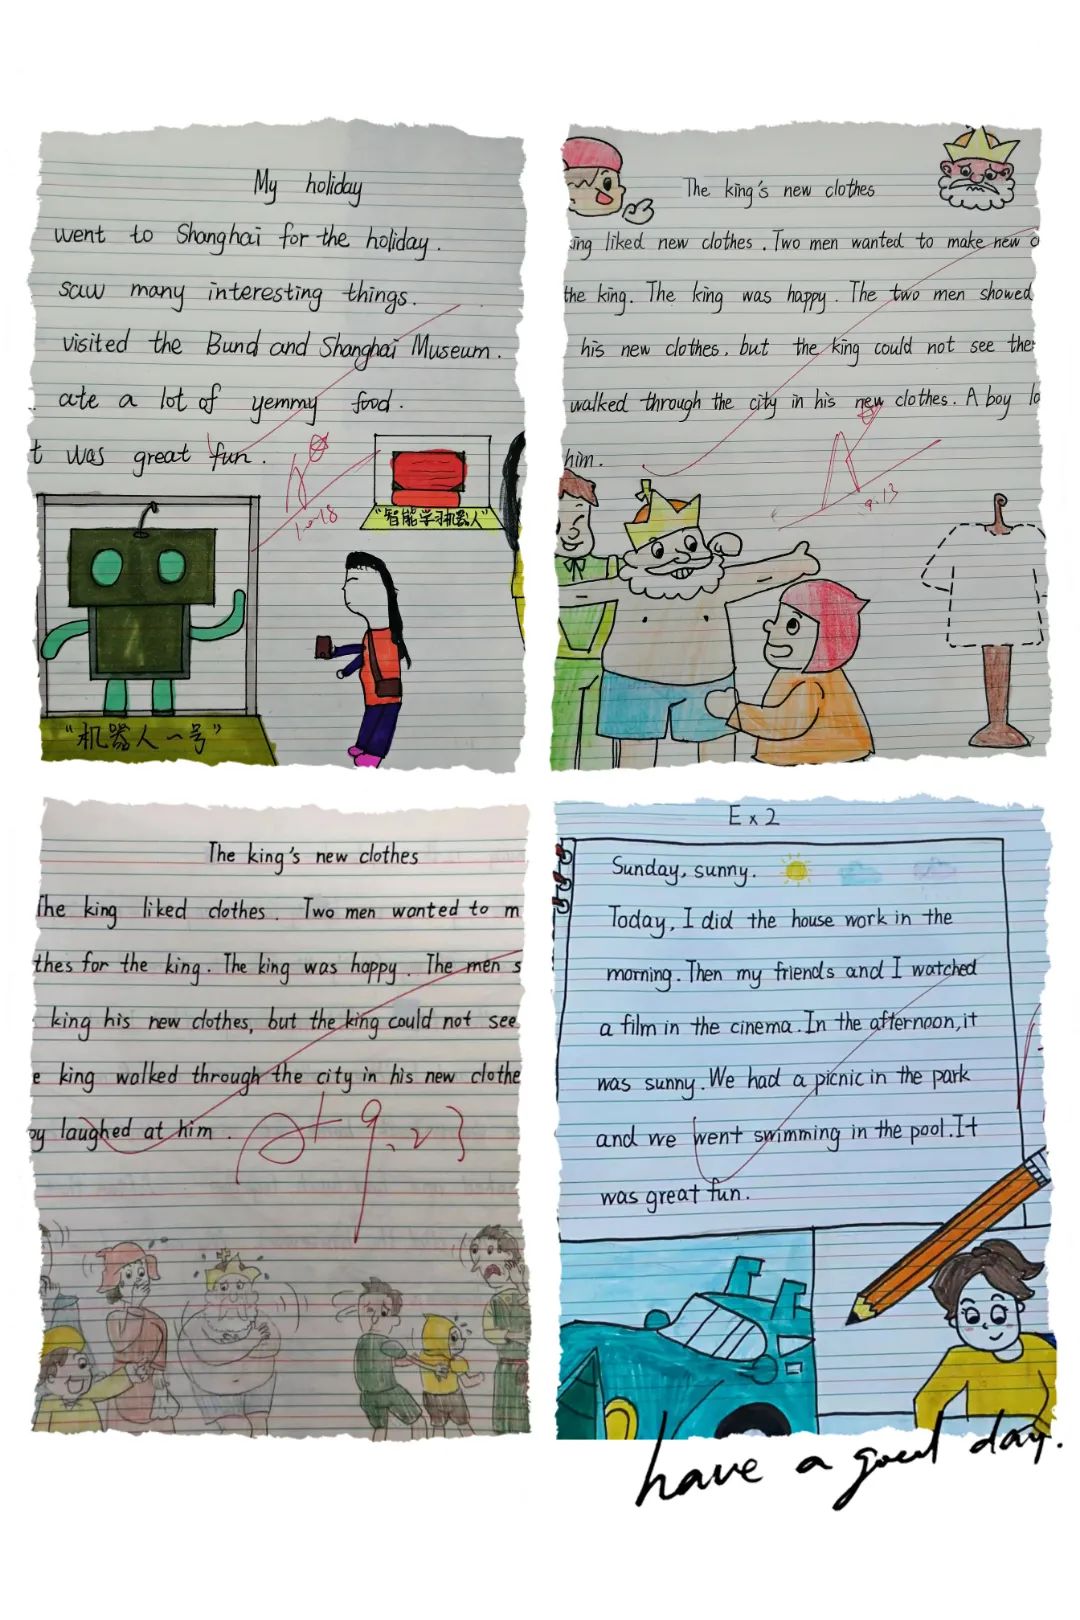 My holiday
went to Shanghai for the holiday.
saw many interesting things.
visited the Bund and Shanghai Museum.
ate a lot of yemmy food.
t was great fun.
"智能学习机器人"
"机器人一号"
The king's new clothes
ing liked new clothes. Two men wanted to make new c
the king. The king was happy. The two men showed
his new clothes, but the king could not see the
walked through the city in his new clothes. A boy la
him.
A
9.13
The king's new clothes
The king liked clothes. Two men wanted to m
thes for the king. The king was happy. The men s
king his new clothes, but the king could not see
e king walked through the city in his new clothe
oy laughed at him.
A+ 9.23
Ex2
Sunday, sunny.
Today, I did the house work in the
morning. Then my friends and I watched
a film in the cinema. In the afternoon, it
was sunny. We had a picnic in the park
and we went swimming in the pool. It
was great fun.
have a good day.